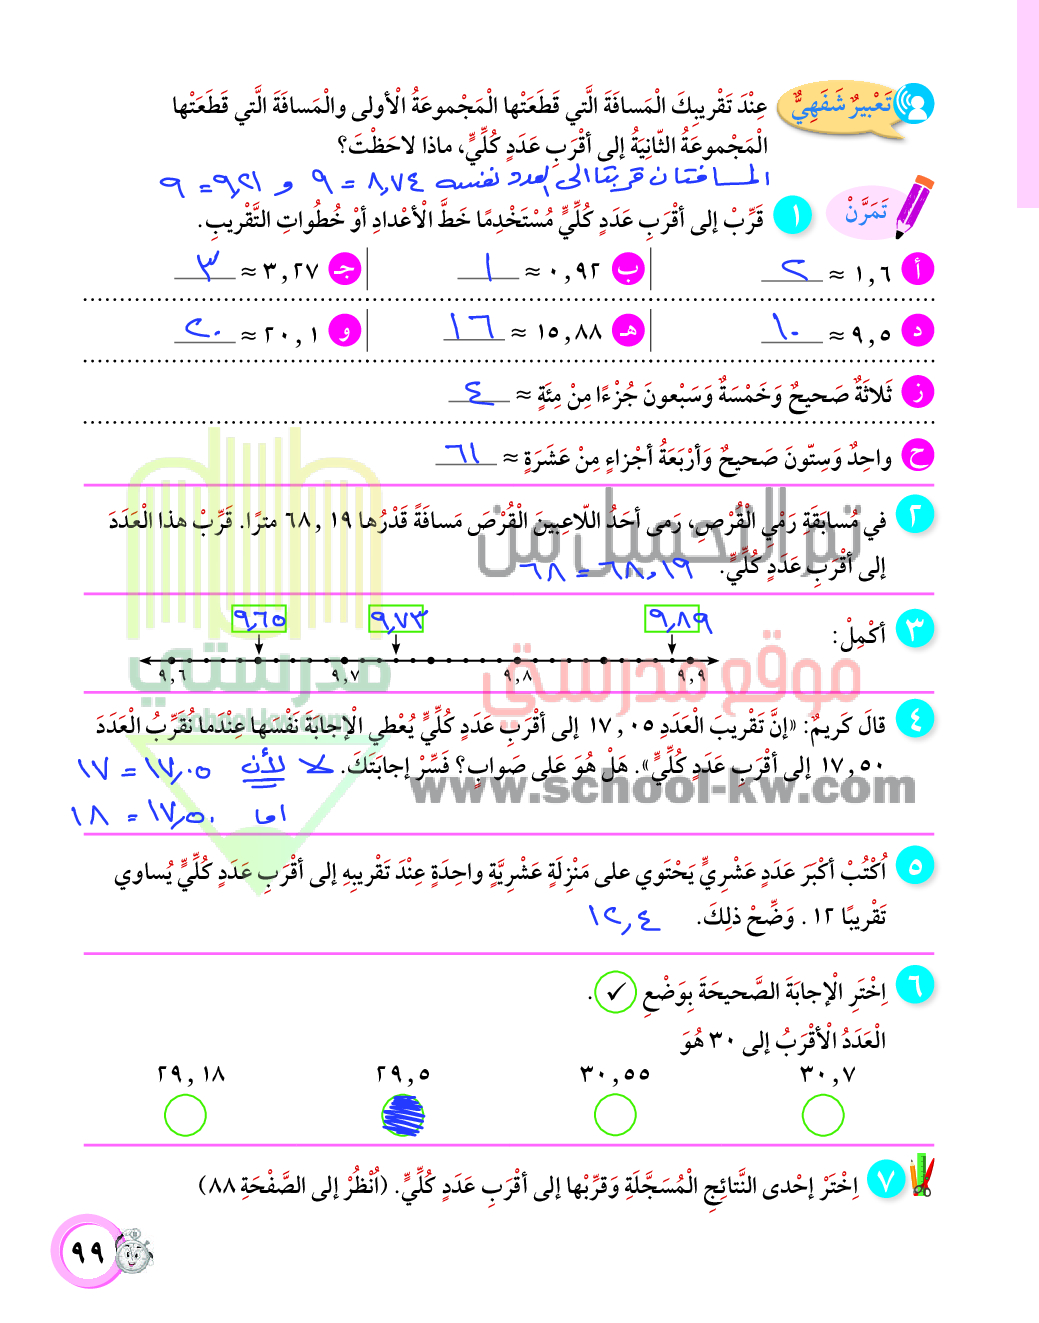 تَعْبيرٌ شَفَهِيٌّ
عِنْدَ تَقْريبِكَ الْمَسافَةَ الَّتي قَطَعَتْها الْمَجْموعَةُ الْأولى والْمَسافَةَ الَّتي قَطَعَتْها
الْمَجْموعَةُ الثّانِيَةُ إلى أقْرَبِ عَدَدٍ كُلِّيٍّ، ماذا لاحَظْتَ؟
المسافتان قربتا الى العدد نفسه ٨,٧٤ = ٩ و ٩,٢١ = ٩
تَمَرَّنْ
١ قَرِّبْ إلى أقْرَبِ عَدَدٍ كُلِّيٍّ مُسْتَخْدِمًا خَطَّ الْأعْدادِ أوْ خُطُواتِ التَّقْريبِ.
أ ١,٦ ≈ ٢ ب ٠,٩٢ ≈ ١ جـ ٣,٢٧ ≈ ٣
د ٩,٥ ≈ ١٠ هـ ١٥,٨٨ ≈ ١٦ و ٢٠,١ ≈ ٢٠
ز ثَلاثَةٌ صَحيحٌ وَخَمْسَةٌ وَسَبْعونَ جُزْءًا مِنْ مِئَةٍ ≈ ٤
ح واحِدٌ وَسِتّونَ صَحيحٌ وَأرْبَعَةُ أجْزاءٍ مِنْ عَشَرَةٍ ≈ ٦١
تم التحميل من
٢ في مُسابَقَةِ رَمْيِ الْقُرْصِ، رَمى أحَدُ اللّاعِبينَ الْقُرْصَ مَسافَةً قَدْرُها ٦٨,١٩ مترًا. قَرِّبْ هذا الْعَدَدَ
إلى أقْرَبِ عَدَدٍ كُلِّيٍّ. ٦٨,١٩ = ٦٨
٣ أكْمِلْ:
٩,٦٥ ٩,٧٣ ٩,٨٩
٩,٦ ٩,٧ ٩,٨ ٩,٩
موقع مدرستي
مدرستي
school-kw.com
٤ قالَ كَريمٌ: «إنَّ تَقْريبَ الْعَدَدِ ١٧,٠٥ إلى أقْرَبِ عَدَدٍ كُلِّيٍّ يُعْطي الْإجابَةَ نَفْسَها عِنْدَما نُقَرِّبُ الْعَدَدَ
١٧,٥٠ إلى أقْرَبِ عَدَدٍ كُلِّيٍّ». هَلْ هُوَ عَلى صَوابٍ؟ فَسِّرْ إجابَتَكَ. لا لأن ١٧,٠٥ = ١٧
www.school-kw.com
اما ١٧,٥٠ = ١٨
٥ اُكْتُبْ أكْبَرَ عَدَدٍ عَشْرِيٍّ يَحْتَوي على مَنْزِلَةٍ عَشْرِيَّةٍ واحِدَةٍ عِنْدَ تَقْريبِهِ إلى أقْرَبِ عَدَدٍ كُلِّيٍّ يُساوي
تَقْريبًا ١٢ . وَضِّحْ ذلِكَ. ١٢,٤
٦ اِخْتَرِ الْإجابَةَ الصَّحيحَةَ بِوَضْعِ ✓ .
الْعَدَدُ الْأقْرَبُ إلى ٣٠ هُوَ
٣٠,٧ ٣٠,٥٥ ٢٩,٥ ٢٩,١٨
٧ اِخْتَرْ إحْدى النَّتائِجِ الْمُسَجَّلَةِ وَقرِّبْها إلى أقْرَبِ عَدَدٍ كُلِّيٍّ. (اُنْظُرْ إلى الصَّفْحَةِ ٨٨)
٩٩